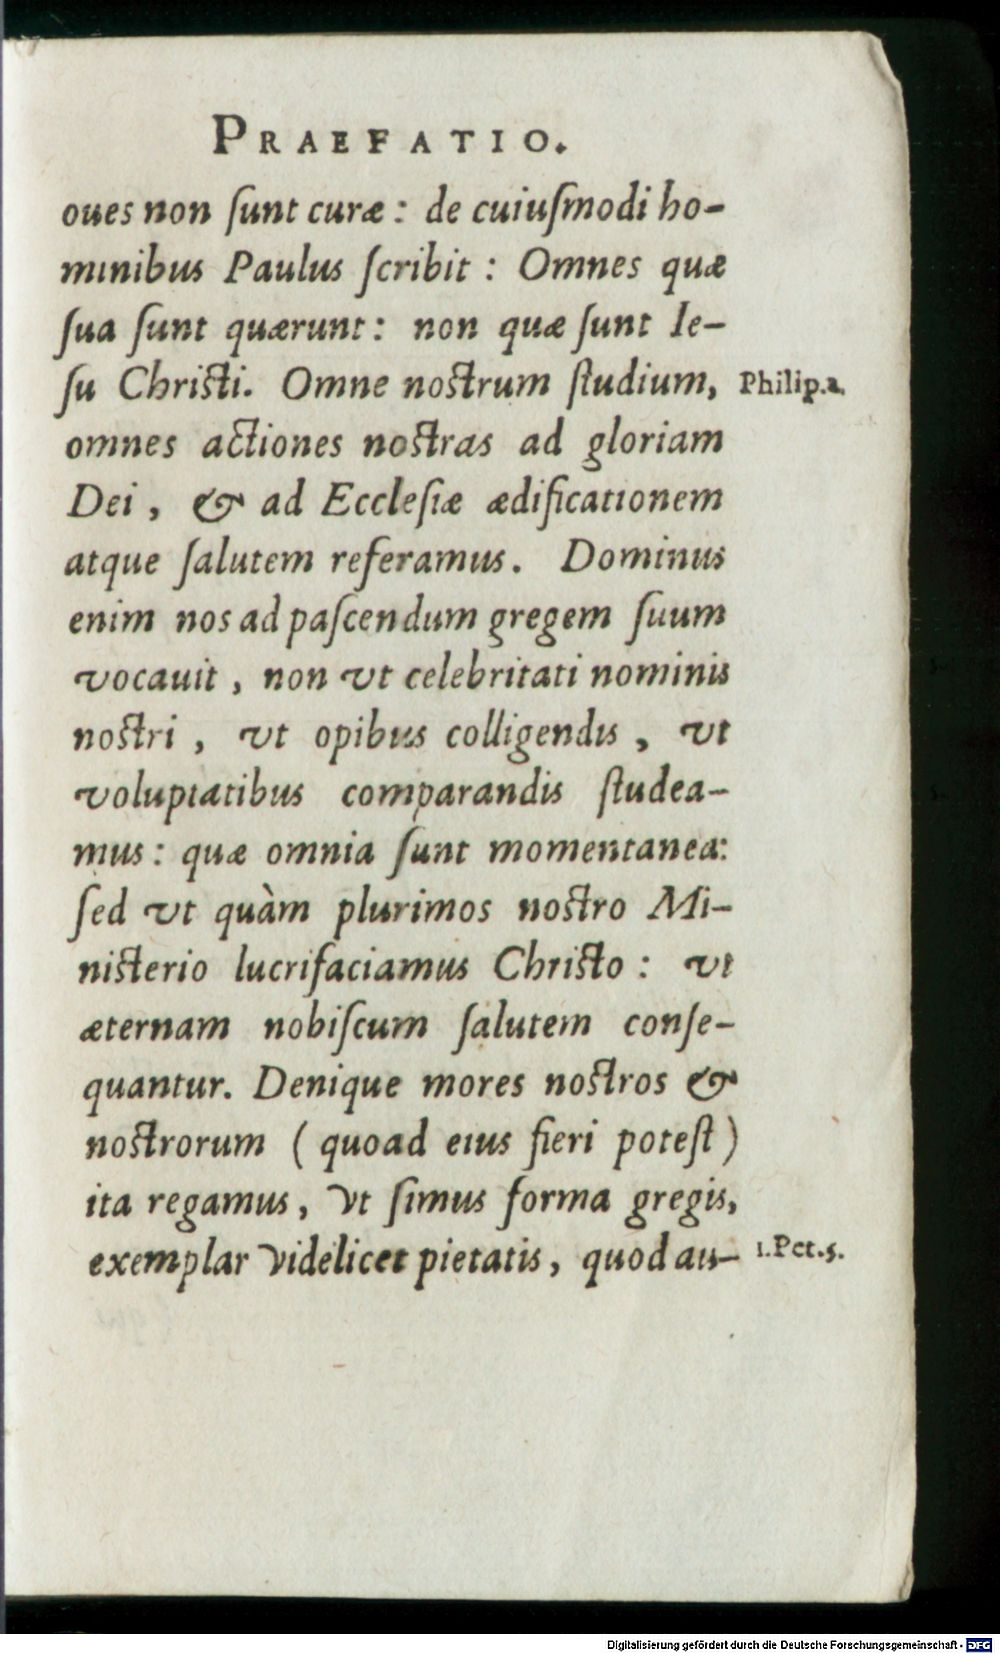 PRAEFATIO.
oues non ſunt curæ : de cuiuſmodi ho-
minibus Paulus ſcribit : Omnes quæ
ſua ſunt quærunt : non quæ ſunt Ie-
ſu Chriſti. Omne noſtrum ſtudium, Philip.2.
omnes actiones noſtras ad gloriam
Dei, & ad Eccleſiæ ædificationem
atque ſalutem referamus. Dominus
enim nos ad paſcendum gregem ſuum
vocauit, non vt celebritati nominis
noſtri, vt opibus colligendis, vt
voluptatibus comparandis ſtudea-
mus : quæ omnia ſunt momentanea:
ſed vt quàm plurimos noſtro Mi-
niſterio lucrifaciamus Chriſto : vt
æternam nobiſcum ſalutem conſe-
quantur. Denique mores noſtros &
noſtrorum ( quoad eius fieri poteſt )
ita regamus, vt ſimus forma gregis,
exemplar videlicet pietatis, quod au- 1.Pet.5.
Digitalisierung gefördert durch die Deutsche Forschungsgemeinschaft - DFG